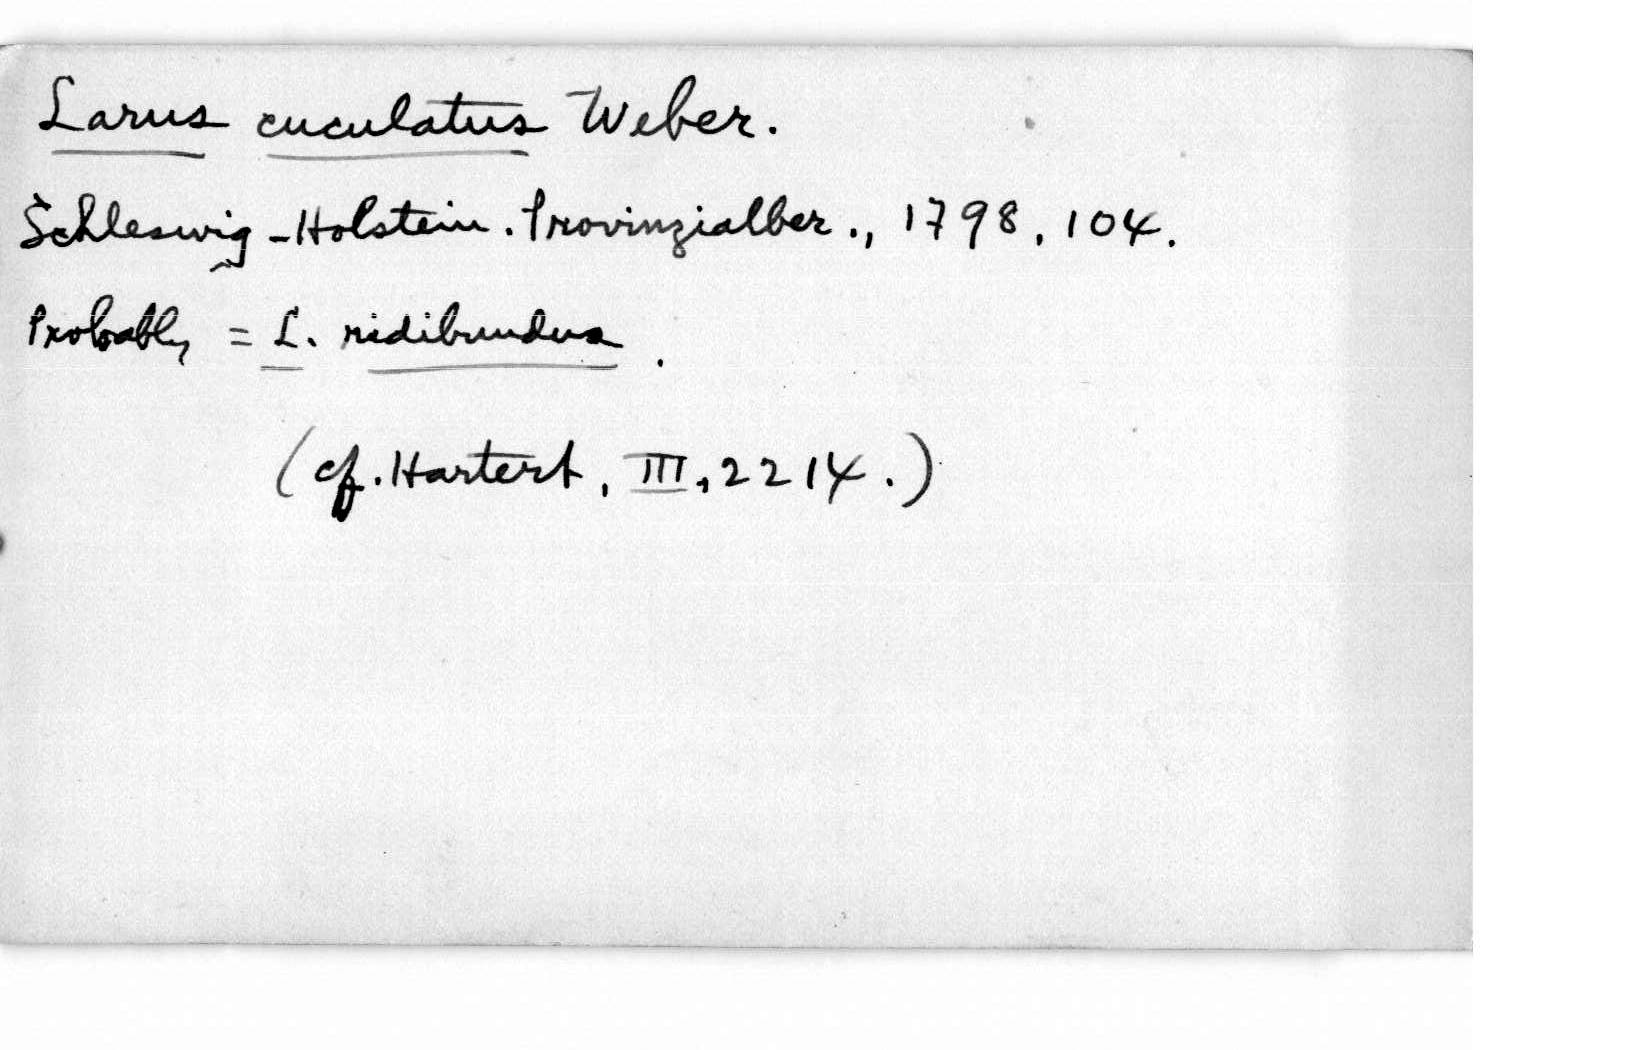 Larus cuculatus Weber.
Schleswig-Holstein. Provinzialber., 1798, 104.
Probably = L. ridibundus.
(cf. Hartert, III, 2214.)